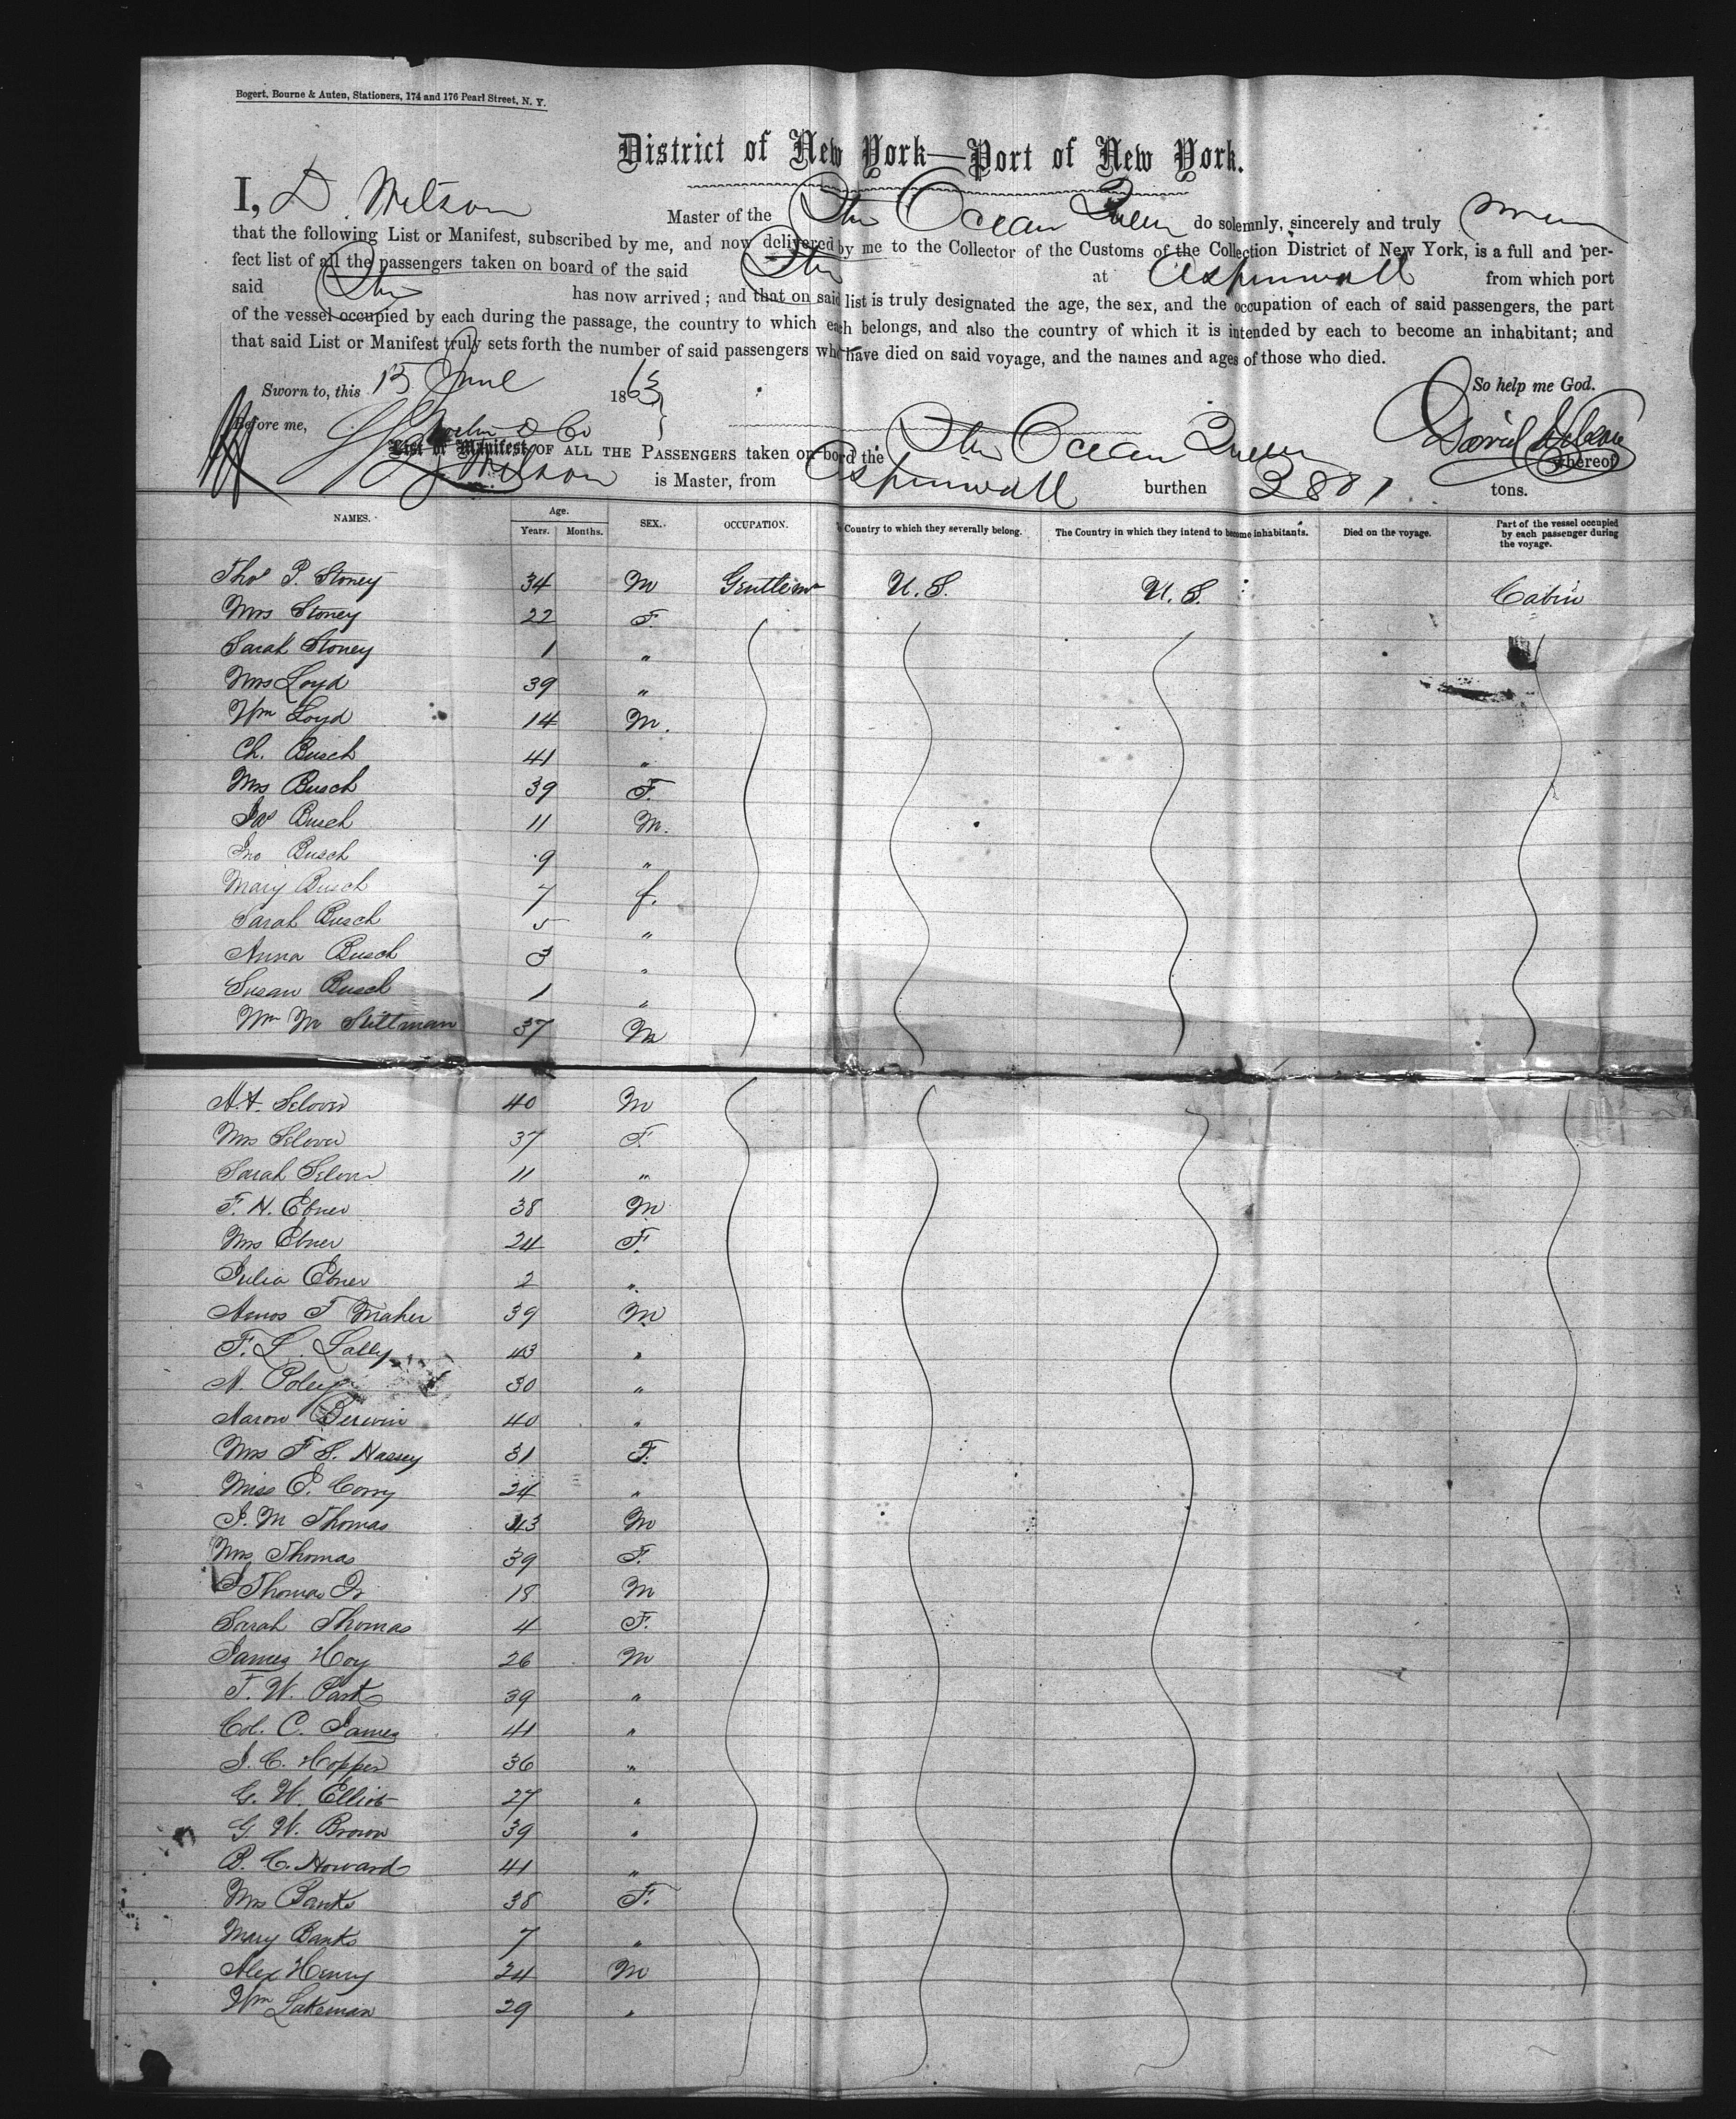 Bogert, Bourne & Auten, Stationers, 174 and 176 Pearl Street, N. Y.
District of New York—Port of New York.
I, D. Wilson Master of the Str Ocean Queen do solemnly, sincerely and truly swear
that the following List or Manifest, subscribed by me, and now delivered by me to the Collector of the Customs of the Collection District of New York, is a full and per-
fect list of all the passengers taken on board of the said Str at Aspinwall from which port
said Str has now arrived; and that on said list is truly designated the age, the sex, and the occupation of each of said passengers, the part
of the vessel occupied by each during the passage, the country to which each belongs, and also the country of which it is intended by each to become an inhabitant; and
that said List or Manifest truly sets forth the number of said passengers who have died on said voyage, and the names and ages of those who died.
Sworn to, this 15 June 1863 So help me God.
Before me,
List or Manifest OF ALL THE PASSENGERS taken on bord the Str Ocean Queen whereof
Wilson is Master, from Aspinwall burthen 2801 tons.
NAMES. Age. Years. Months. SEX. OCCUPATION. Country to which they severally belong. The Country in which they intend to become inhabitants. Died on the voyage. Part of the vessel occupied by each passenger during the voyage.
Thos P. Stoney 34 M Gentlemn U.S. U.S. Cabin
Mrs Stoney 22 F.
Sarah Stoney 1 "
Mrs Loyd 39 "
Wm Loyd 14 M.
Ch. Busch 41 "
Mrs Busch 39 F.
Jas Busch 11 M.
Jno Busch 9 "
Mary Busch 7 f.
Sarah Busch 5 "
Anna Busch 3 "
Susan Busch 1 "
Wm M Stillman 37 M
A.A. Selover 40 M
Mrs Selover 37 F.
Sarah Selover 11 "
F. N. Ebner 38 M
Mrs Ebner 24 F.
Julia Ebner 2 "
Amos T Maher 39 M
F. L. Lally 43 "
A. Poley 30 "
Aaron Berwin 40 "
Mrs F S. Hassey 31 F.
Miss E. Corry 24 "
J. M Thomas 43 M
Mrs Thomas 39 F.
J Thomas Jr 18 M
Sarah Thomas 4 F.
James Hoy 26 M
T. W. Park 39 "
Col. C. James 41 "
J. C. Hopper 36 "
G. W. Elliot 27 "
G. W. Brown 39 "
B. C. Howard 41 "
Mrs Banks 38 F.
Mary Banks 7 "
Alex Henry 24 M
Wm Lakeman 29 "